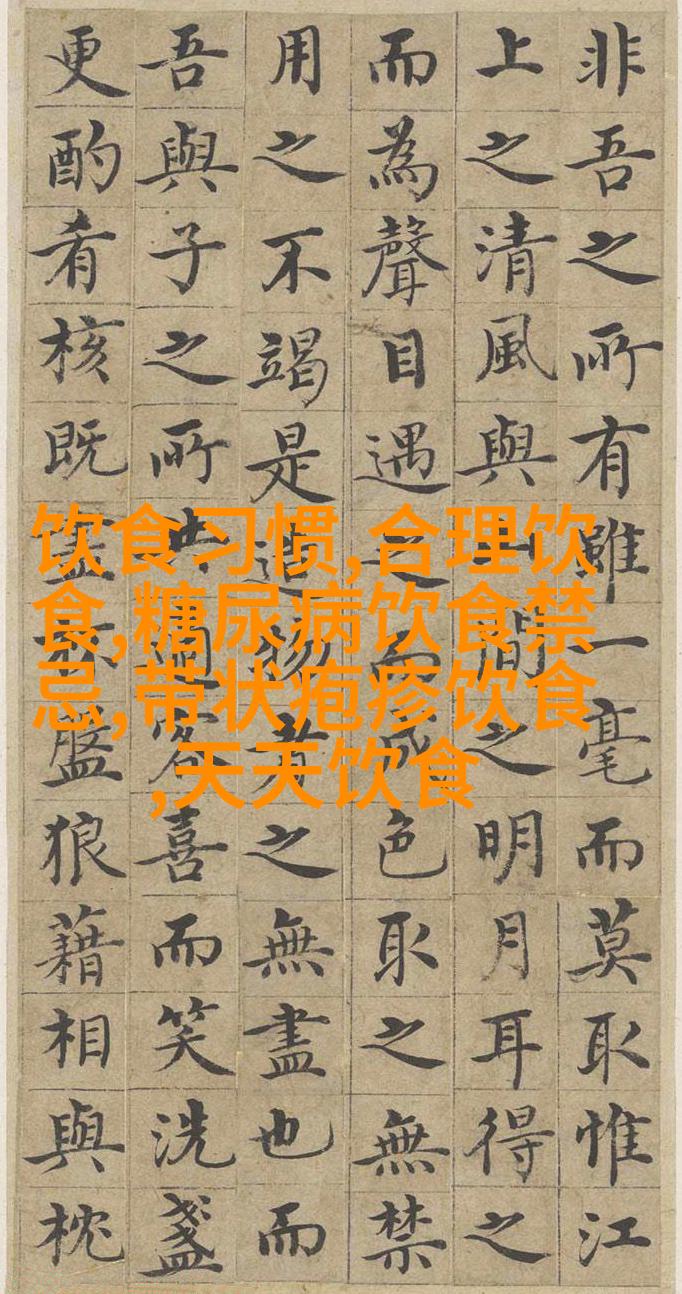 非吾之所有雖一毫而莫取惟江
上之清風與山間之明月耳得之
而為聲目遇之而成色取之無禁
用之不竭是造物者之無盡也而
吾與子之所共適客喜而笑洗盞
更酌肴核既盡盤狼藉相與枕
饮食习惯,合理饮
食,糖尿病饮食禁
忌,带状疱疹饮食
,天天饮食